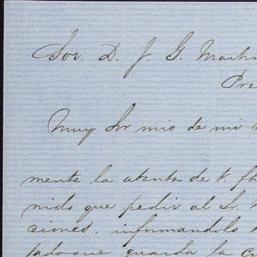 Sor. D. J. G. Martin
Pre
Muy Sr mio de mi
mente la atenta de V. fh
nido que pedir al Sr.
ciones, informandolo
tado que guarda la c